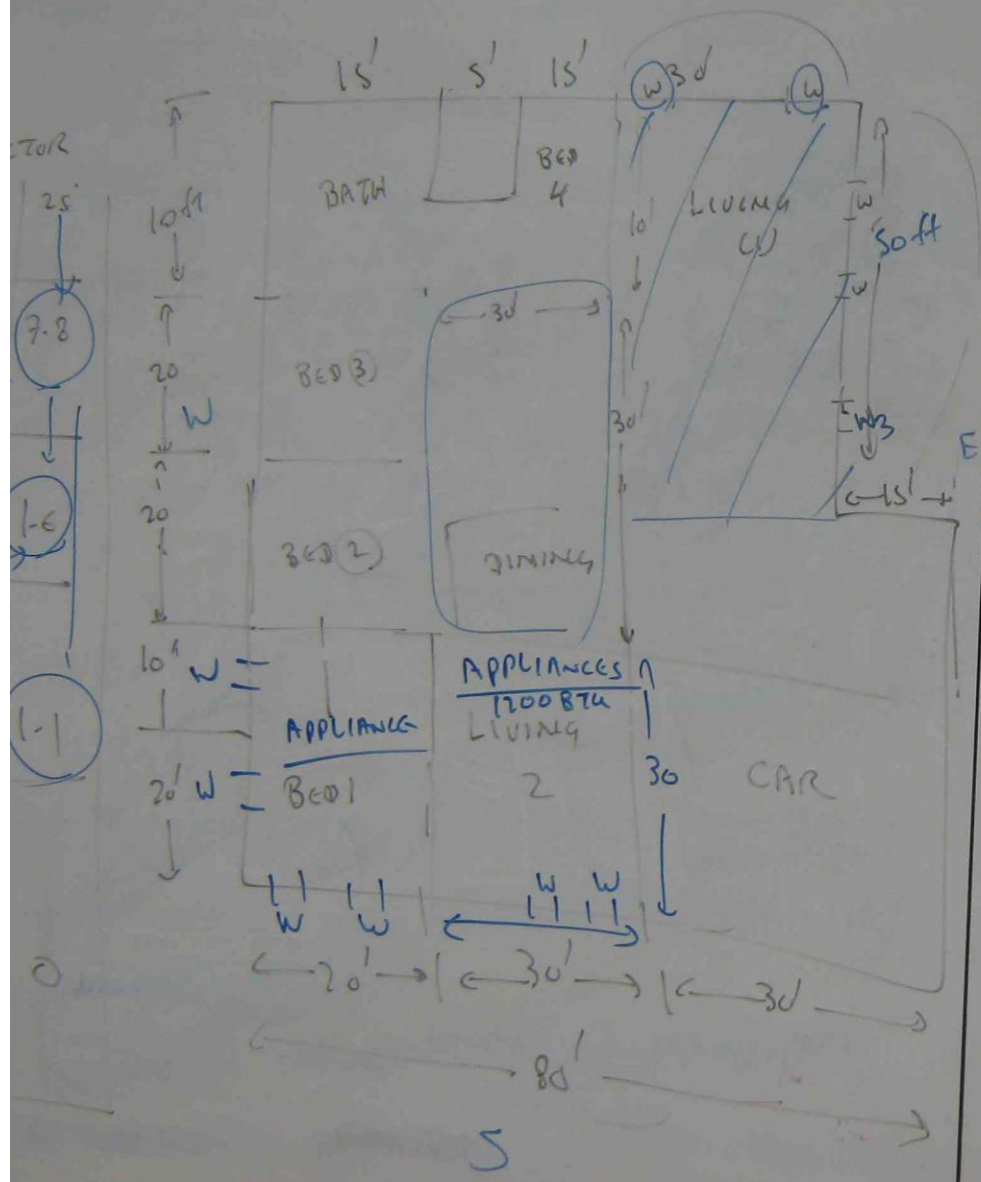 15' 5' 15' W 30' W
TOR
25
10ft
BATH
BED
4
10'
LIVING
(1)
W
50ft
W
7-8
20
W
BED 3
30'
30'
W3
E
15'
20
BED 2
DINING
10' W
APPLIANCES
1200 BTU
APPLIANCE
LIVING
1-1
20' W
BED 1
2
30
CAR
W W
W W
20' 30' 30'
80'
S